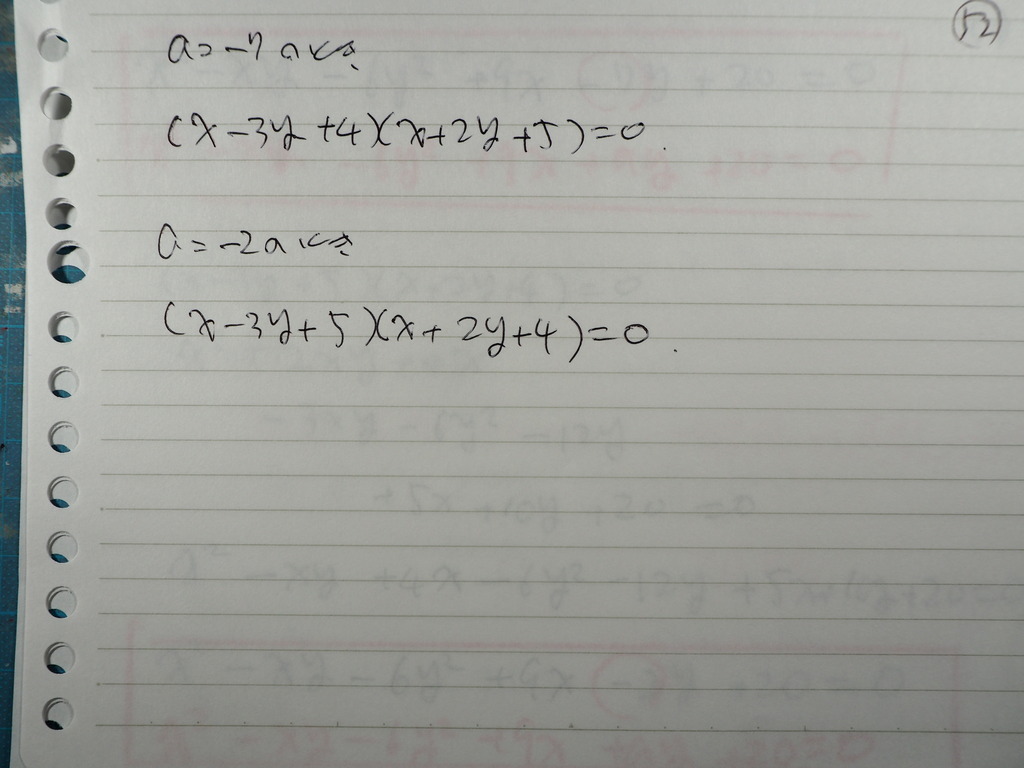 52
a=-7のとき
(x-3y+4)(x+2y+5)=0.
a=-2のとき
(x-3y+5)(x+2y+4)=0.